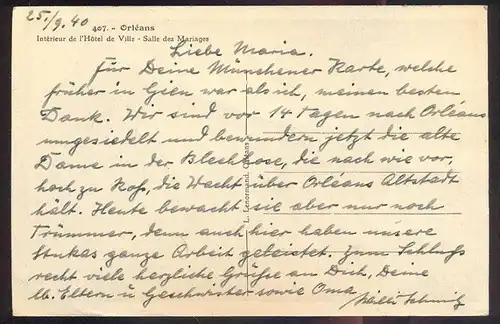 25./9.40
407. - Orléans
Intérieur de l'Hôtel de Ville - Salle des Mariages
Liebe Maria.
Für Deine Münchener Karte, welche
früher in Gien war als ich, meinen besten
Dank. Wir sind vor 14 Tagen nach Orléans
umgesiedelt und bewundern jetzt die alte
Dame in der Blechhose, die nach wie vor,
hoch zu Roß, die Wacht über Orléans Altstadt
hält. Heute bewacht sie aber nur noch
Trümmer, denn auch hier haben unsere
Stukas ganze Arbeit geleistet. Zum Schluß
recht viele herzliche Grüße an Dich, Deine
lb. Eltern u Geschwister sowie Oma
Willi Schmitz
L. Lenormand, Orléans